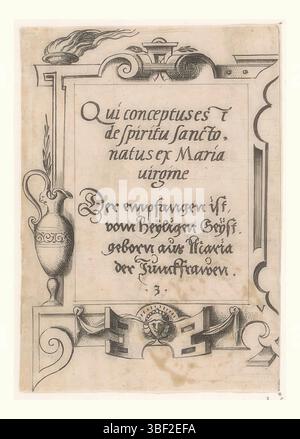 Qui conceptus es t̄
de spiritu sancto.
natus ex Maria
virgine
Der empfangen ist
vom heyligen Geyst
geborn auss Maria
der Junckfrawen.
3
alamy
Image ID: 3BF2EFA
www.alamy.com